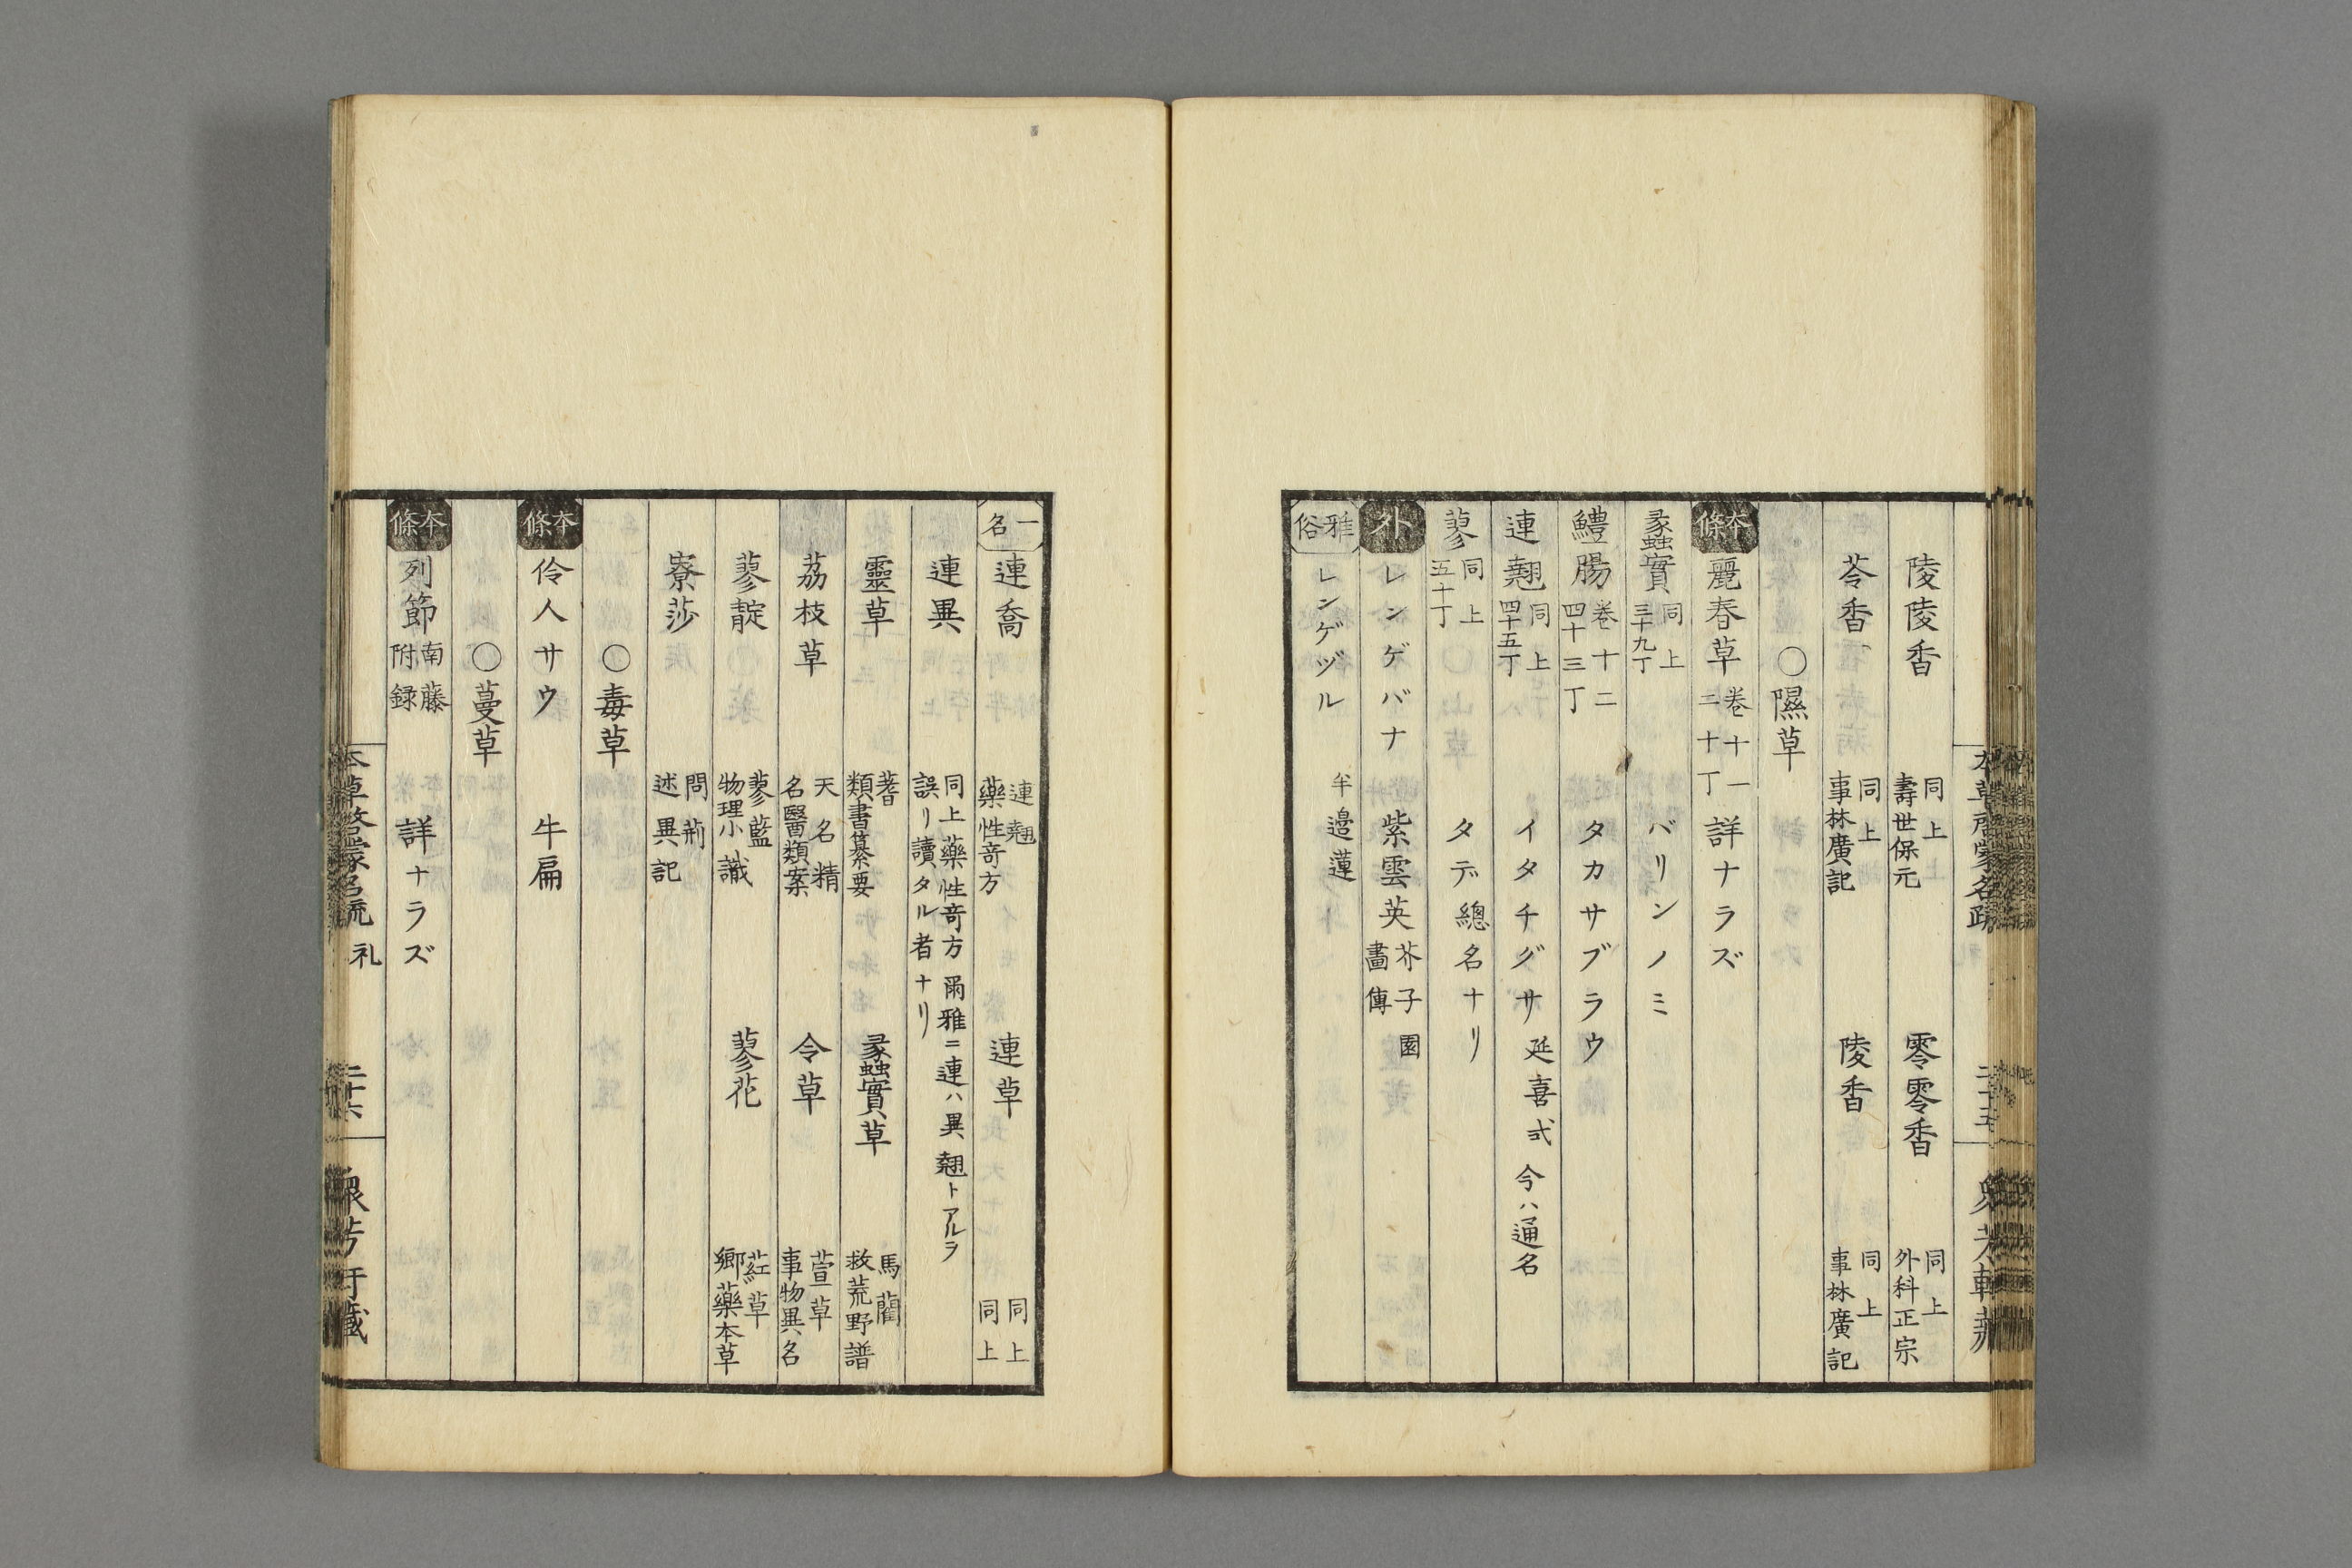 陵陵香 同上 壽世保元 零零香 同上 外科正宗
苓香 同上 事林廣記 陵香 同上 事林廣記
〇隰草
本條 麗春草 卷十一 二十丁 詳ナラズ
蠡實 同上 三十九丁 バリンノミ
鱧腸 卷十二 四十三丁 タカサブラウ
連翹 同上 四十五丁 イタチグサ 延喜式 今ハ通名
蓼 同上 五十丁 タデ總名ナリ
外 レンゲバナ 紫雲英 芥子園畫傳
雅俗 レンゲヅル 半邉蓮
一名 連喬 連翹 藥性竒方 連草 同上 同上
連異 同上藥性竒方 爾雅ニ連ハ異翹トアルヲ誤リ讀タル者ナリ
靈草 蓍 類書纂要 蠡實草 馬藺 救荒野譜
茘枝草 天名精 名醫類案 令草 萱草 事物異名
蓼靛 蓼藍 物理小識 蓼花 葒草 郷藥本草
寮莎 問荊 述異記
〇毒草
本條 伶人サウ 牛扁
〇蔓草
本條 列節 南藤附録 詳ナラズ
本草啓蒙名疏 礼 二十六 衆芳軒藏